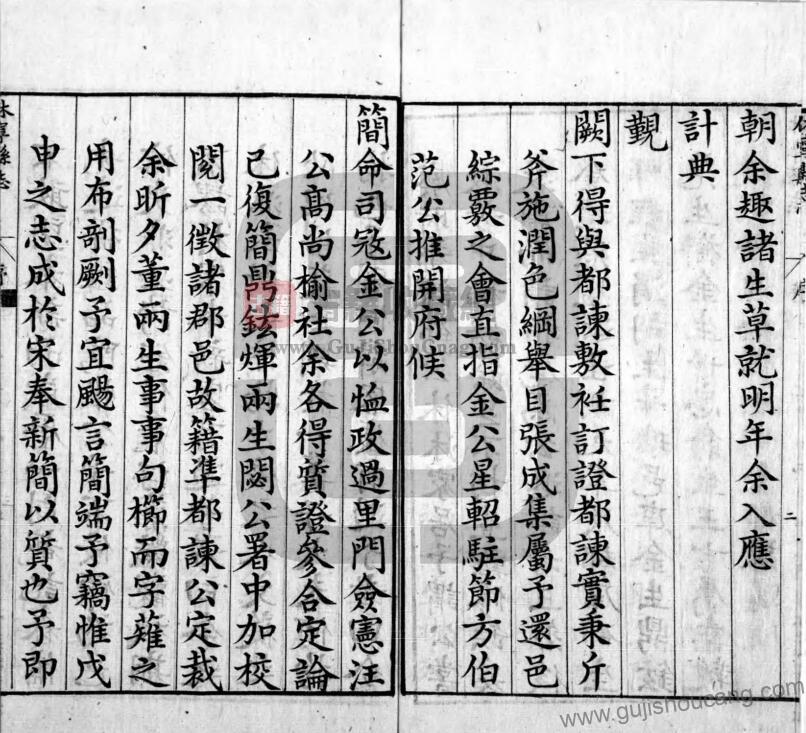 朝余趣諸生草就明年余入應
計典
覲
闕下得與都諫敷衽訂證都諫實秉斤
斧施潤色綱舉目張成集屬予還邑
綜覈之會直指金公星軺駐節方伯
范公推開府候
簡命司寇金公以恤政過里門僉憲汪
公高尚榆社余各得質證參合定論
已復簡鼎鉉煇兩生閟公署中加校
閱一徵諸郡邑故籍準都諫公定裁
余昕夕董兩生事事句櫛而字薙之
用布剞劂予宜颺言簡端予竊惟戊
申之志成於宋奉新簡以質也予即
休寧縣志
序
二
古籍
www.GuJiShouCang.com
www.gujishoucang.com